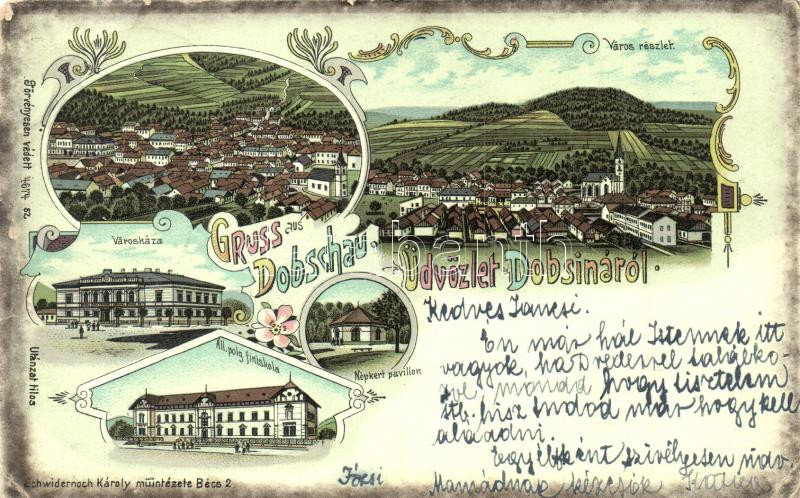 Város részlet.
Törvényesen védett 4674. 82.
Városháza
GRUSS aus
Dobschau.
Üdvözlet Dobsináról.
Népkert pavillon
Áll. polg. fiúiskola
Utánzat tilos
Schwidernoch Károly műintézete Bécs 2.
Kedves Jancsi.
Én már hál Istennek itt
vagyok, ha
mondd hogy tisztelem
stb. hisz tudod már hogy kell
aláadni.
Egyébként szívélyesen üdv.
Mamádnak kézcsók
Józsi